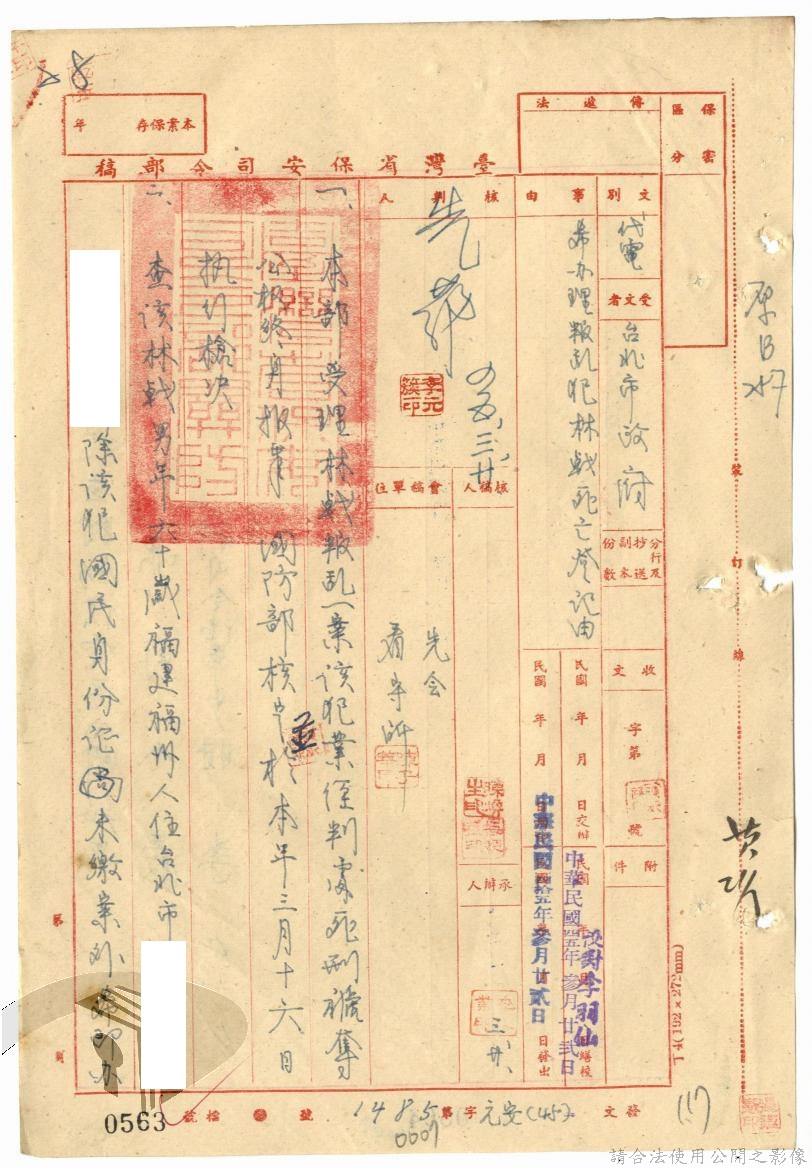 臺灣省保安司令部稿
本案保存 年
傳遞法
保密區分
文別
代電
受文者
台北市政府
分行及抄送副本份數
收文
字第 號
附件
事由
希办理叛乱犯林戟死亡登记由
民國 年 月 日交辦
民國 年 月
中華民國四五年參月廿弍日
中華民國四拾五年參月廿貳日
校對李羽仙
繕校
日發出
核判人
四五、三、廿
李元簇印
核稿人
會稿單位
先会
看守所
承辦人
三、廿
一、本部受理林戟叛乱一案该犯業经判處死刑褫奪
公权终身报奉 國防部核定並於本年三月十六日
执行槍决
二、查该林戟男年六十歲福建福州人住台北市
除该犯國民身份证因未缴案外希即办
發文
(45)
安元
字第
1485
0007
號
檔號
0563
裝訂線
T4(192×272mm)
第 頁
28
(17)
請合法使用公開之影像